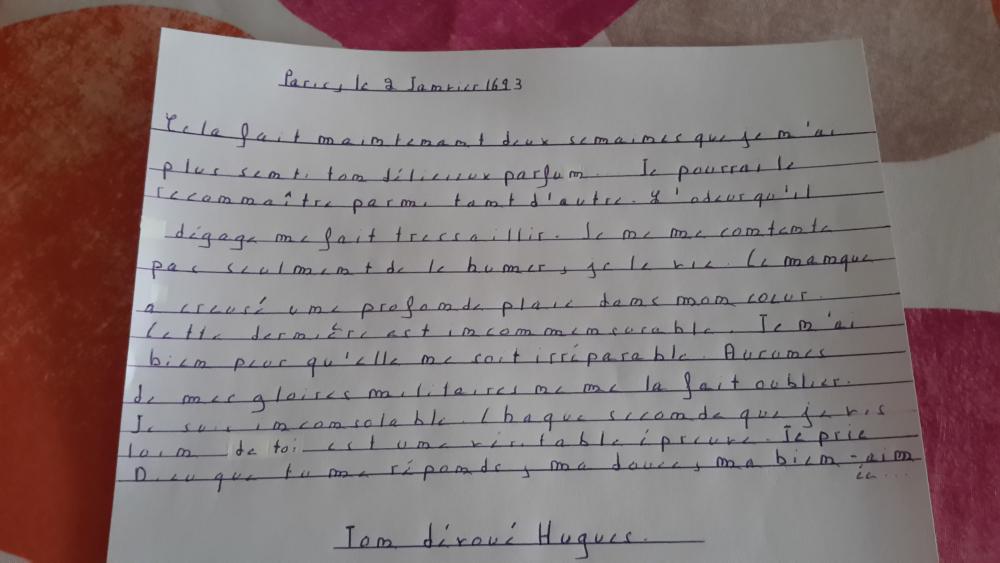 Paris, le 2 Janvier 1693
Cela fait maintenant deux semaines que je n'ai
plus senti ton délicieux parfum. Je pourrai le
reconnaître parmi tant d'autre. L'odeur qu'il
dégage me fait tressaillir. Je ne me contente
pas seulment de le humer, je le vie. Ce manque
a creusé une profonde plaie dans mon coeur.
Cette dernière est incommensurable. Je n'ai
bien peur qu'elle ne soit irréparable. Aucunes
de mes gloires militaires ne me la fait oublier.
Je suis inconsolable. Chaque seconde que je vis
loin de toi est une véritable épreuve. Je prie
Dieu que tu me réponde, ma douce, ma bien-aim
ée...
Ton dévoué Hugues.